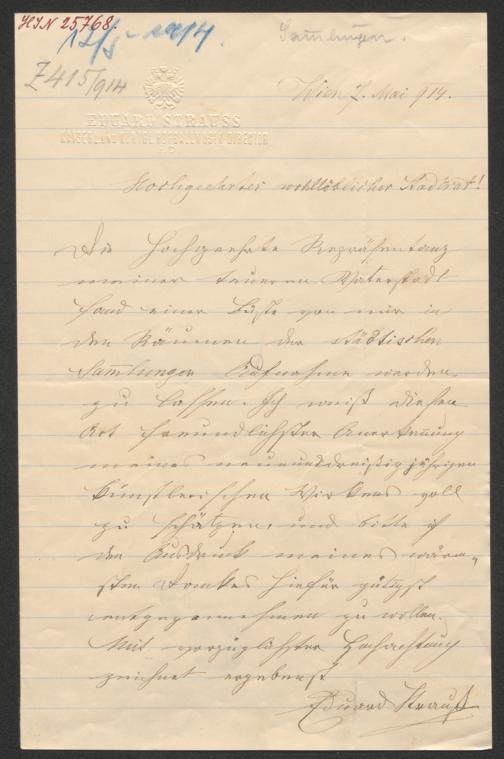 HIN 25768.
12/5 1914.
Sam̄lungen.
Z 415/914
Wien 7. Mai 914.
EDUARD STRAUSS
KAISERL. UND KÖNIGL. HOFBALLMUSIK-DIRECTOR
Hochgeehrter wohllöblicher Stadtrat!
Die hochgeehrte Repräsentanz
meiner teueren Vaterstadt
fand einer Büste von mir in
den Räumen der Städtischen
Sam̄lungen Aufnahme werden
zu lassen. Ich weiß diesen
Act freundlichster Anerkennung
meines neununddreißigjährigen
künstlerischen Wirkens voll
zu schätzen, und bitte ich
den Ausdruck meines wärm-
sten Dankes hiefür gütigst
entgegennehmen zu wollen.
Mit vorzüglichster Hochachtung
zeichnet ergebenst
Eduard Strauß